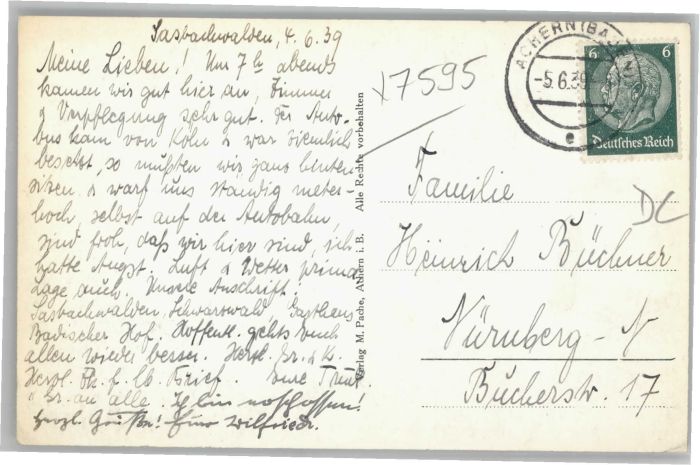 Sasbachwalden, 4.6.39
Meine Lieben! Um 7 h abends
kamen wir gut hier an, Zimmer
& Verpflegung sehr gut. Der Auto-
bus kam von Köln & war ziemlich
besetzt, so mußten wir ganz hinten
sitzen & warf uns ständig meter-
hoch, selbst auf der Autobahn,
sind froh, daß wir hier sind, ich
hatte Angst. Luft & Wetter prima
Lage auch. Unsere Anschrift:
Sasbachwalden, Schwarzwald, Gasthaus
Badischer Hof. Hoffentl. gehts Euch
allen wieder besser. Herzl. Gr. & K.
Herzl. Dk. f. lb. Brief. Eure Trudl
" Gr. an alle. Ich bin
herzl. Grüße! Euer Wilfriede.
Verlag M. Pache, Achern i. B. Alle Rechte vorbehalten
17595
ACHERN (BADEN)
-5.6.39
e
6 6
Deutsches Reich
DC
Familie
Heinrich Büchner
Nürnberg - N
Bucherstr. 17